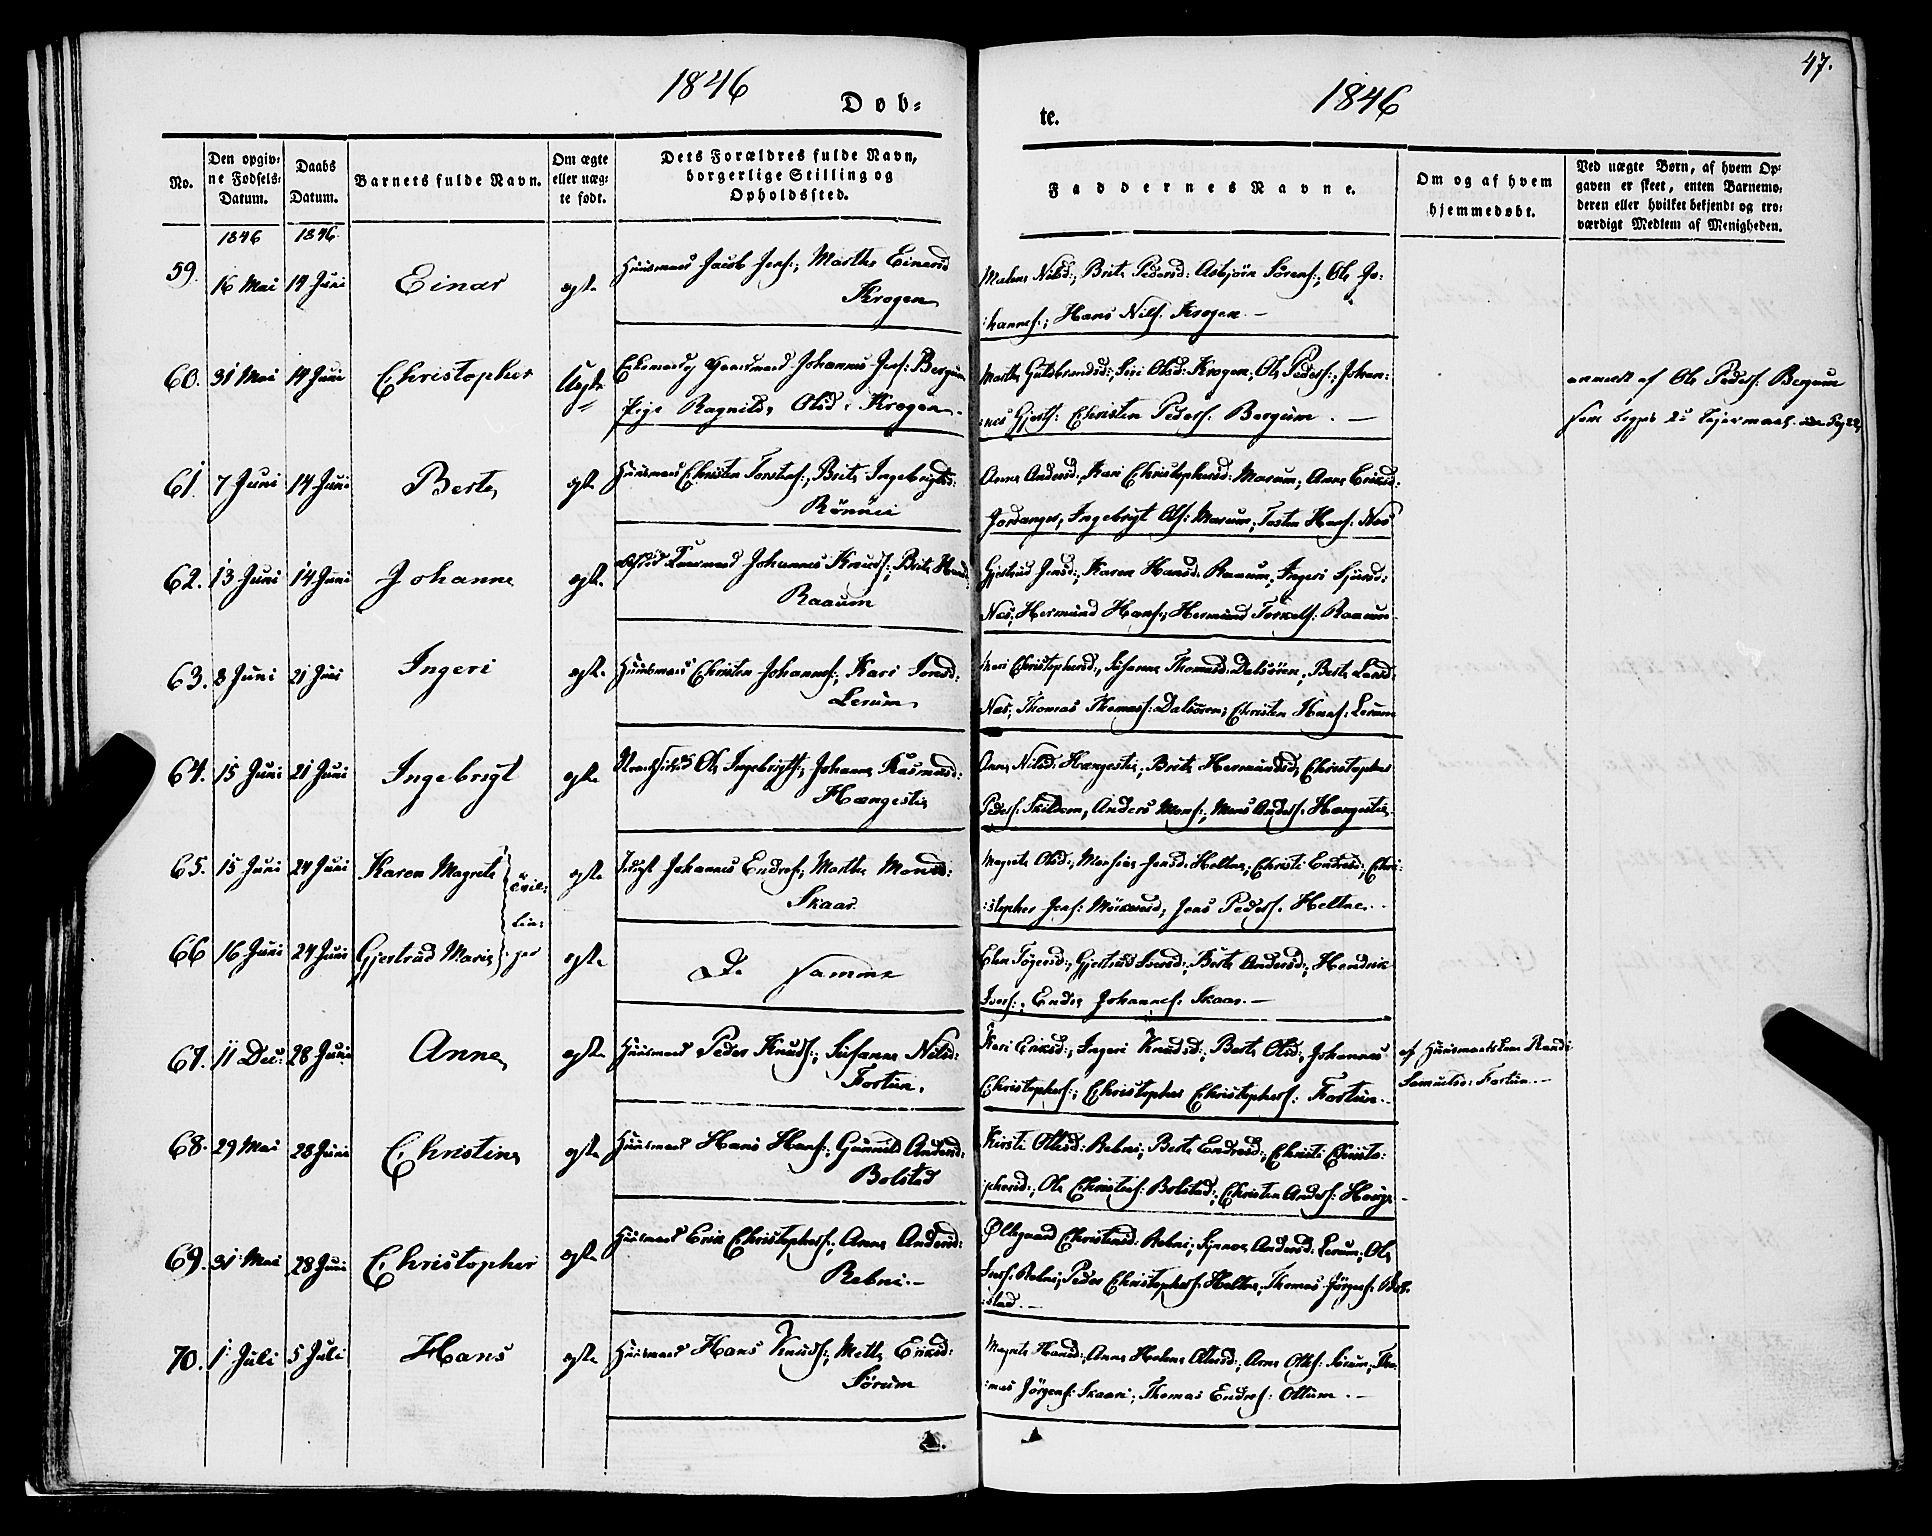 47.
1846
Døb-
te.
1846
No.
Den opgiv-
ne Fødsels-
Datum.
Daabs
Datum.
Barnets fulde Navn.
Om ægte
eller uæg-
te født.
Dets Forældres fulde Navn,
borgerlige Stilling og
Opholdssted.
Faddernes Navne.
Om og af hvem
hjemmedøbt.
Ved uægte Børn, af hvem Op-
gaven er skeet, enten Barnemo-
deren eller hvilket bekjendt og tro-
værdigt Medlem af Menigheden.
1846 1846
59. 16 Mai 14 Juni Einar egte Huusmand Jacob Jens:, Marthe Einarsd
Krogen
Malene Nilsd:, Brite Pedersd: Asbjørn Sørens:, Ole Jo-
:hannes:, Hans Nils: Krogen. —
60. 31 Mai 14 Juni Christopher Uegte Johannes Jens: Bergum
Pige Ragnilde Olsd: Krogen.
Marthe Guldbrandsd:, Siri Olsd: Krogen, Ole Peders:, Johan:
:nes Gjerts: Christen Peders: Bergum. —
anmeldt af Ole Peders: Bergum
61. 7 Juni 14 Juni Berte egte Huusmand Christen Torstens:, Brite Ingebrigtsd:
Rönnei
Anna Andersd:, Kari Christophersd: Marum, Anna Eriksd:
Jordanger, Ingebrigt Ols: Marum, Tosten Hans: Næs
62. 13 Juni 14 Juni Johanne egte Johannes Knuds:, Brite Hansd:
Raaum
Gjertrud Jensd:, Karen Hansd: Raaum, Ingeri Sjursd:
Næs, Hermund Hans:, Hermund Torkels: Raaum
63. 8 Juni 21 Juni Ingeri egte Huusmand Christen Johannes:, Kari Jonsd:
Lerum
Kari Christophersd:, Susanne Thomasd: Dalsören, Berte Larsd:
Næs, Thomas Thomas: Dalsören, Christen Hans: Lerum
64. 15 Juni 21 Juni Ingebrigt egte Ole Ingebrigts:, Johanne Rasmusd:
Hængestie
Anna Nilsd: Hængestie, Brite Hermundsd, Christopher
Peders: Skildem, Anders Mons:, Mons Anders: Hængestie.
65. 15 Juni 24 Juni Karen Magrete egte Johannes Endres:, Marthe Monsd:
Skaar.
Magrete Olsd:, Jensd: Heltne, Christi Endresd:, Chri-
:stopher Jens: Jens Peders: Heltne.
tvil-
lin-
ger
66 16 Juni 24 Juni Gjertrud Marie egte De samme
Elen Gjertrud Berte Andersd:, Hendrik
Ivers:, Endre Johannes: Skaar. —
67. 11 Dec: 28 Juni Anne egte Huusmand Peder Knuds:, Susanne Nilsd:
Fortun.
Kari Eriksd:, Ingeri Knudsd:, Berte Olsd:, Johannes
Christophers:, Christopher Christophers: Fortun.
af Huusmandskone Randi
Samuelsd: Fortun. —
68. 29 Mai 28 Juni Christine egte Huusmand Hans Hans:, Gunnild Andersd:
Bolstad
Kirsti Ottesd: Rebni, Berte Endresd:, Christi Christo-
:phersd:, Ole Christens: Bolstad, Christen Anders: Hauge
69. 31 Mai 28 Juni Christopher egte Huusmand Erik Christophers:, Anna Andersd:
Rebni. —
Øllegaard Christensd: Rebni, Synneve Andersd: Lerum, Ole
Ivers: Rebni, Peder Christophers: Heltne, Thomas Jörgens: Bol-
:stad. —
70. 1 Juli 5 Juli Hans egte Huusmand Hans Knuds:, Mette Eriksd:
Sörum
Magrete Hansd:, Anna Helene Olsd:, Arne Ottes: Sörum, Tho-
:mas Jörgens: Skaar, Thomas Endres: Ottum. —